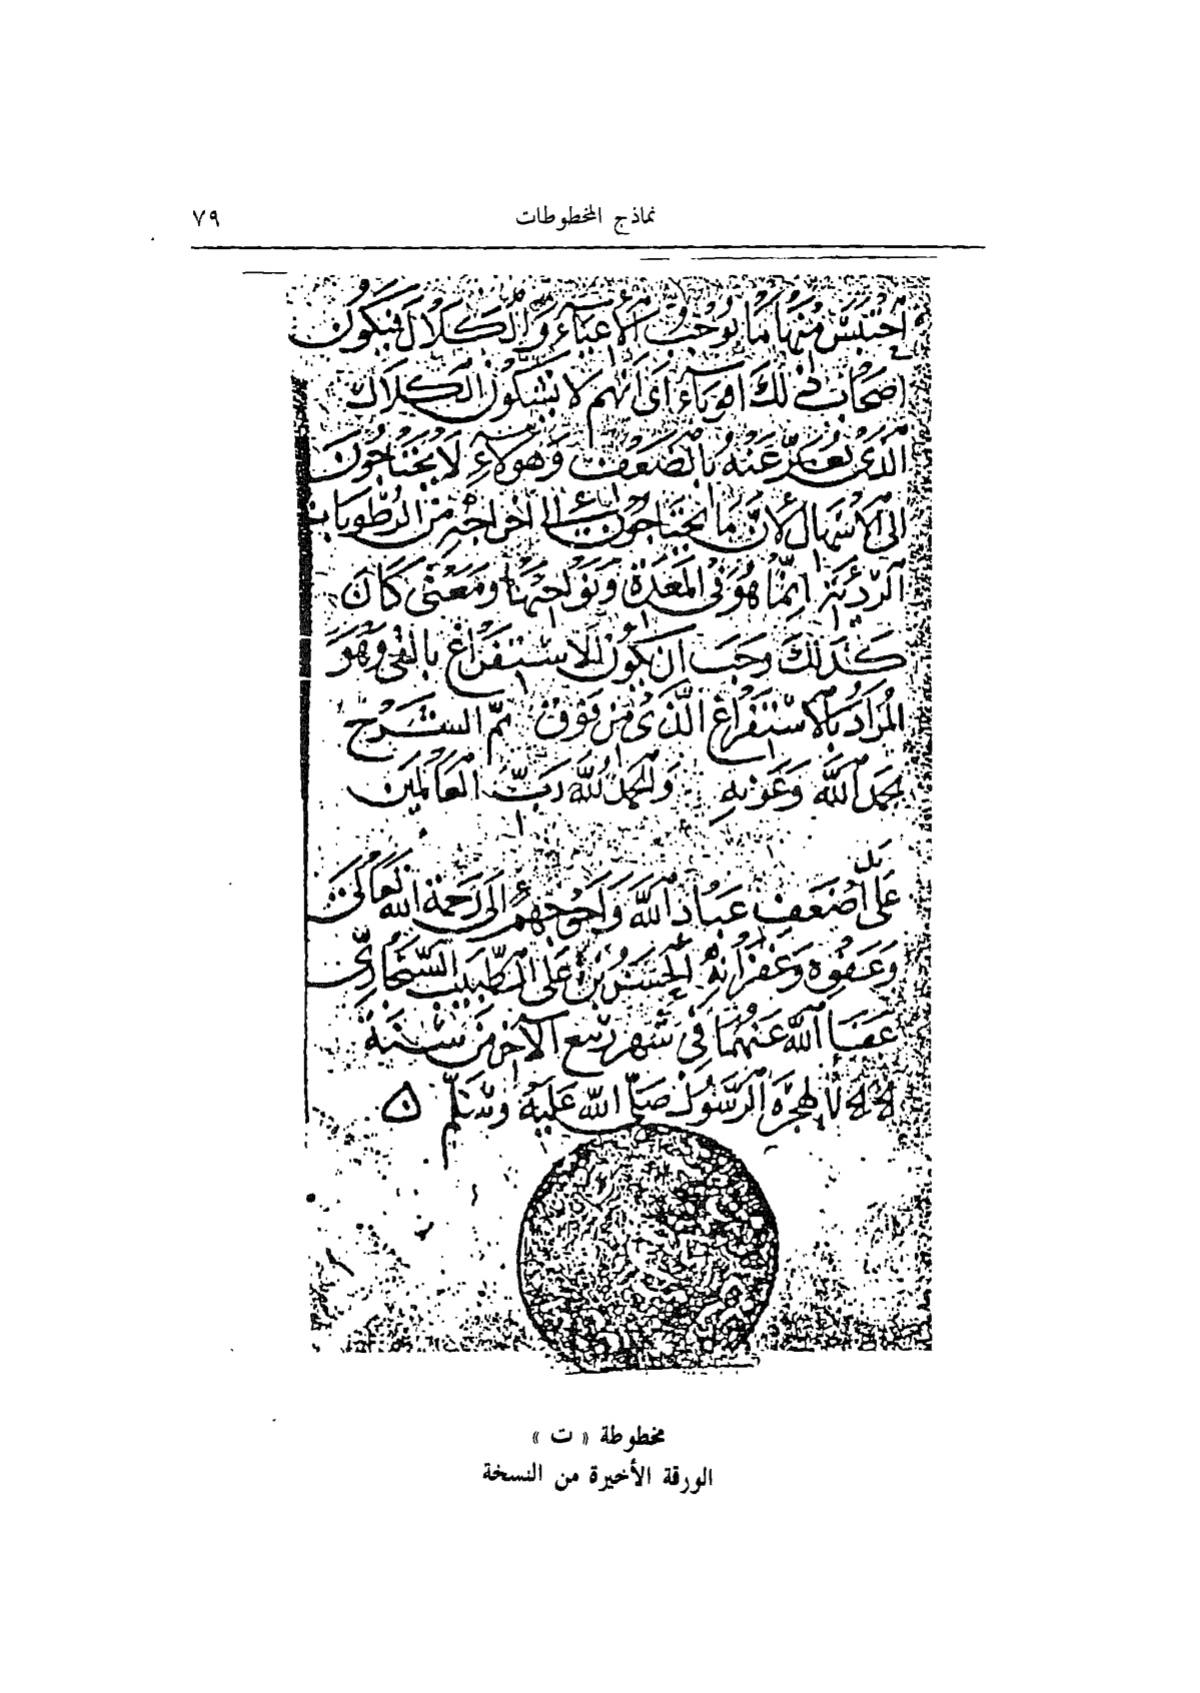 نماذج المخطوطات
٧٩
احتبس منها ما يوجب الأعياء والكلال فيكون
اصحاب ذلك اقوياء اى انهم لا يشكون الكلال
الذى يعبر عنه بالضعف وهولاء لا يحتاجون
الى الاسهال لأن ما يحتاجون الى اخراجه من الرطوبات
الردئة انما هو فى المعدة ونواحيها ومعنى كان
كذلك وجب ان يكون الاستفراغ بالقى وهو
المراد بالاستفراغ الذى من فوق تم الشرح
بحمد الله وعونه والحمد لله رب العالمين
على يد
اضعف عباد الله واحوجهم الى رحمة الله تعالى
وعفوه وغفرانه الحسن بن على الطبيب
عفا الله عنهما فى شهر ربيع الآخر من سنة
لهجرة الرسول صلى الله عليه وسلم
مخطوطة « ت »
الورقة الأخيرة من النسخة